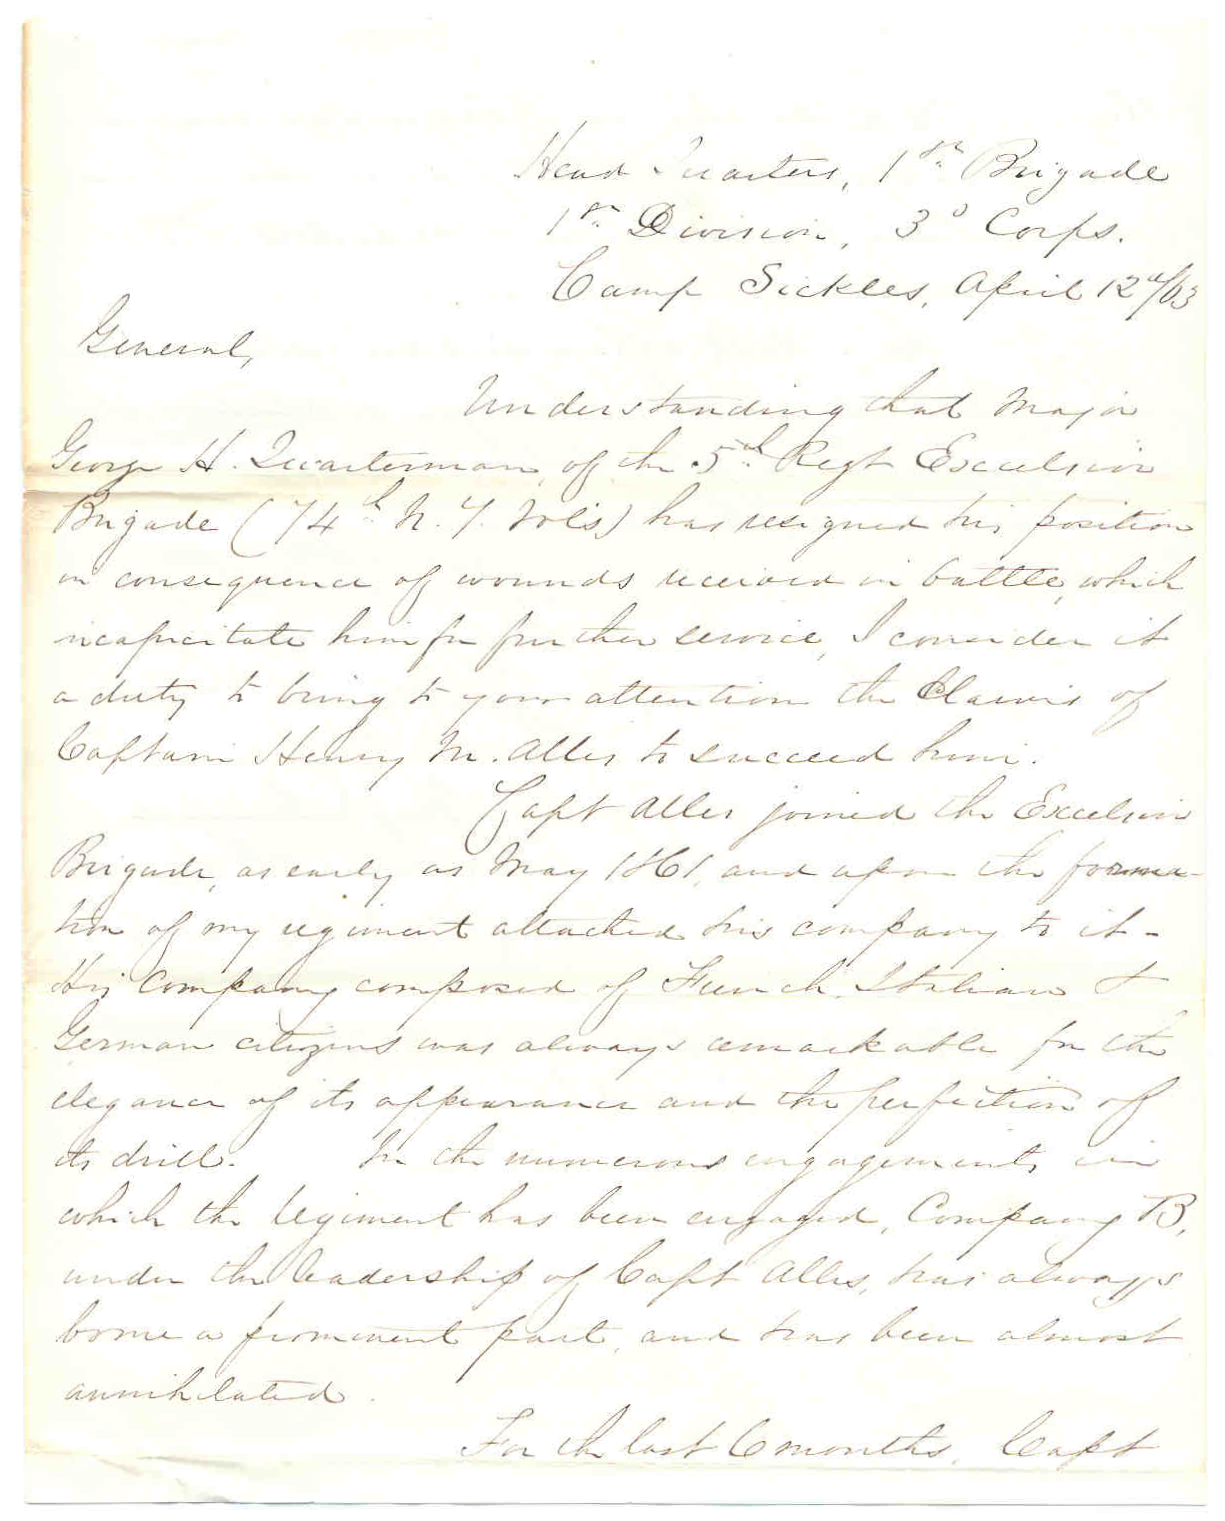 Head Quarters, 1st Brigade
1st Division, 3d Corps.
Camp Sickles, April 12th/63
General,
Understanding that Major
George H. Quarterman, of the 5th Regt Excelsior
Brigade (74th N. Y. Vols) has resigned his position
in consequence of wounds received in battle, which
incapacitate him for further service, I consider it
a duty to bring to your attention the Claims of
Captain Henry M. Alles to succeed him.
Capt Alles joined the Excelsior
Brigade, as early as May 1861, and upon the forma-
tion of my regiment attached his company to it -
His Company composed of French, Italian &
German citizens was always remarkable for the
elegance of its appearance and the perfection of
its drill. In the numerous engagements in
which the regiment has been engaged, Company B,
under the leadership of Capt Alles, has always
borne a prominent part, and has been almost
annihilated.
For the last 6 months, Capt